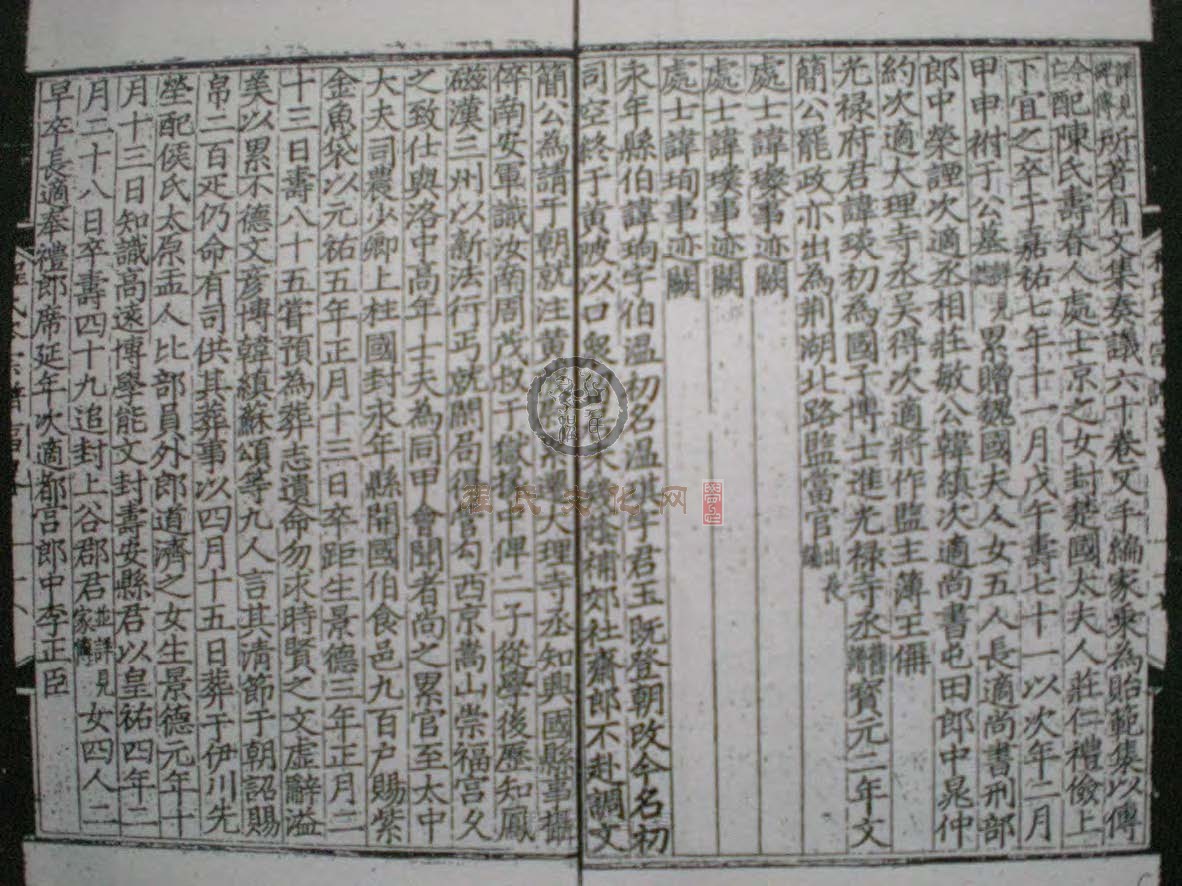 詳見碑傳所著有文集奏議六十卷又手編家乘為貽範集以傳
今亡配陳氏壽春人處士京之女封楚國太夫人莊仁禮儉上
下宜之卒于嘉祐七年十一月戊午壽七十一以次年二月
甲申祔于公墓 詳見 累贈魏國夫人女五人長適尚書刑部
郎中榮諲次適丞相莊敏公韓縝次適尚書屯田郎中晁仲
約次適大理寺丞吳得次適將作監主薄王傋
光祿府君諱琰初為國子博士進光祿寺丞 寶元二年文
簡公罷政亦出為荆湖北路監當官 出長
處士諱璨事迹闕
處士諱璞事迹闕
處士諱珣事迹闕
永年縣伯諱珦字伯溫初名溫琪字君玉既登朝改今名初
司空終于黃陂以口衆 蔭補郊社齋郎不赴調文
簡公為請于朝就注黃 遷大理寺丞知興國縣事攝
倅南安軍識汝南周茂叔于獄掾中俾二子從學後歷知鳳
磁漢三州以新法行丐就閑局得管勾西京嵩山崇福宮久
之致仕與洛中高年士夫為同甲會聞者尚之累官至太中
大夫司農少卿上柱國封永年縣開國伯食邑九百戶賜紫
金魚袋以元祐五年正月十三日卒距生景德三年正月二
十三日壽八十五嘗預為葬志遺命勿求時賢之文虛辭溢
美以累不德文彥博韓縝蘇頌等九人言其清節于朝詔賜
帛二百疋仍命有司供其葬事以四月十五日葬于伊川先
塋配侯氏太原盂人比部員外郎道濟之女生景德元年十
月十三日知識高遠博學能文封壽安縣君以皇祐四年二
月二十八日卒壽四十九追封上谷郡君 並詳見家傳 女四人二
早卒長適奉禮郎席延年次適都官郎中李正臣
程氏文化网